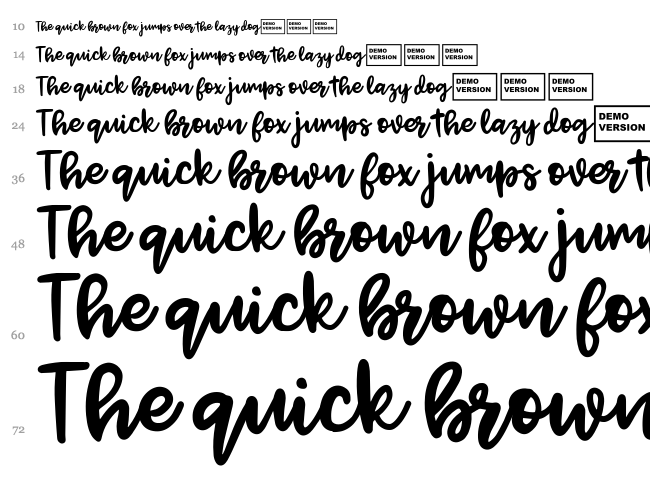 10 The quick brown fox jumps over the lazy dog DEMO VERSION DEMO VERSION DEMO VERSION
14 The quick brown fox jumps over the lazy dog DEMO VERSION DEMO VERSION DEMO VERSION
18 The quick brown fox jumps over the lazy dog DEMO VERSION DEMO VERSION DEMO VERSION
24 The quick brown fox jumps over the lazy dog DEMO VERSION
36 The quick brown fox jumps over t
48 The quick brown fox jum
60 The quick brown fo
72 The quick brown